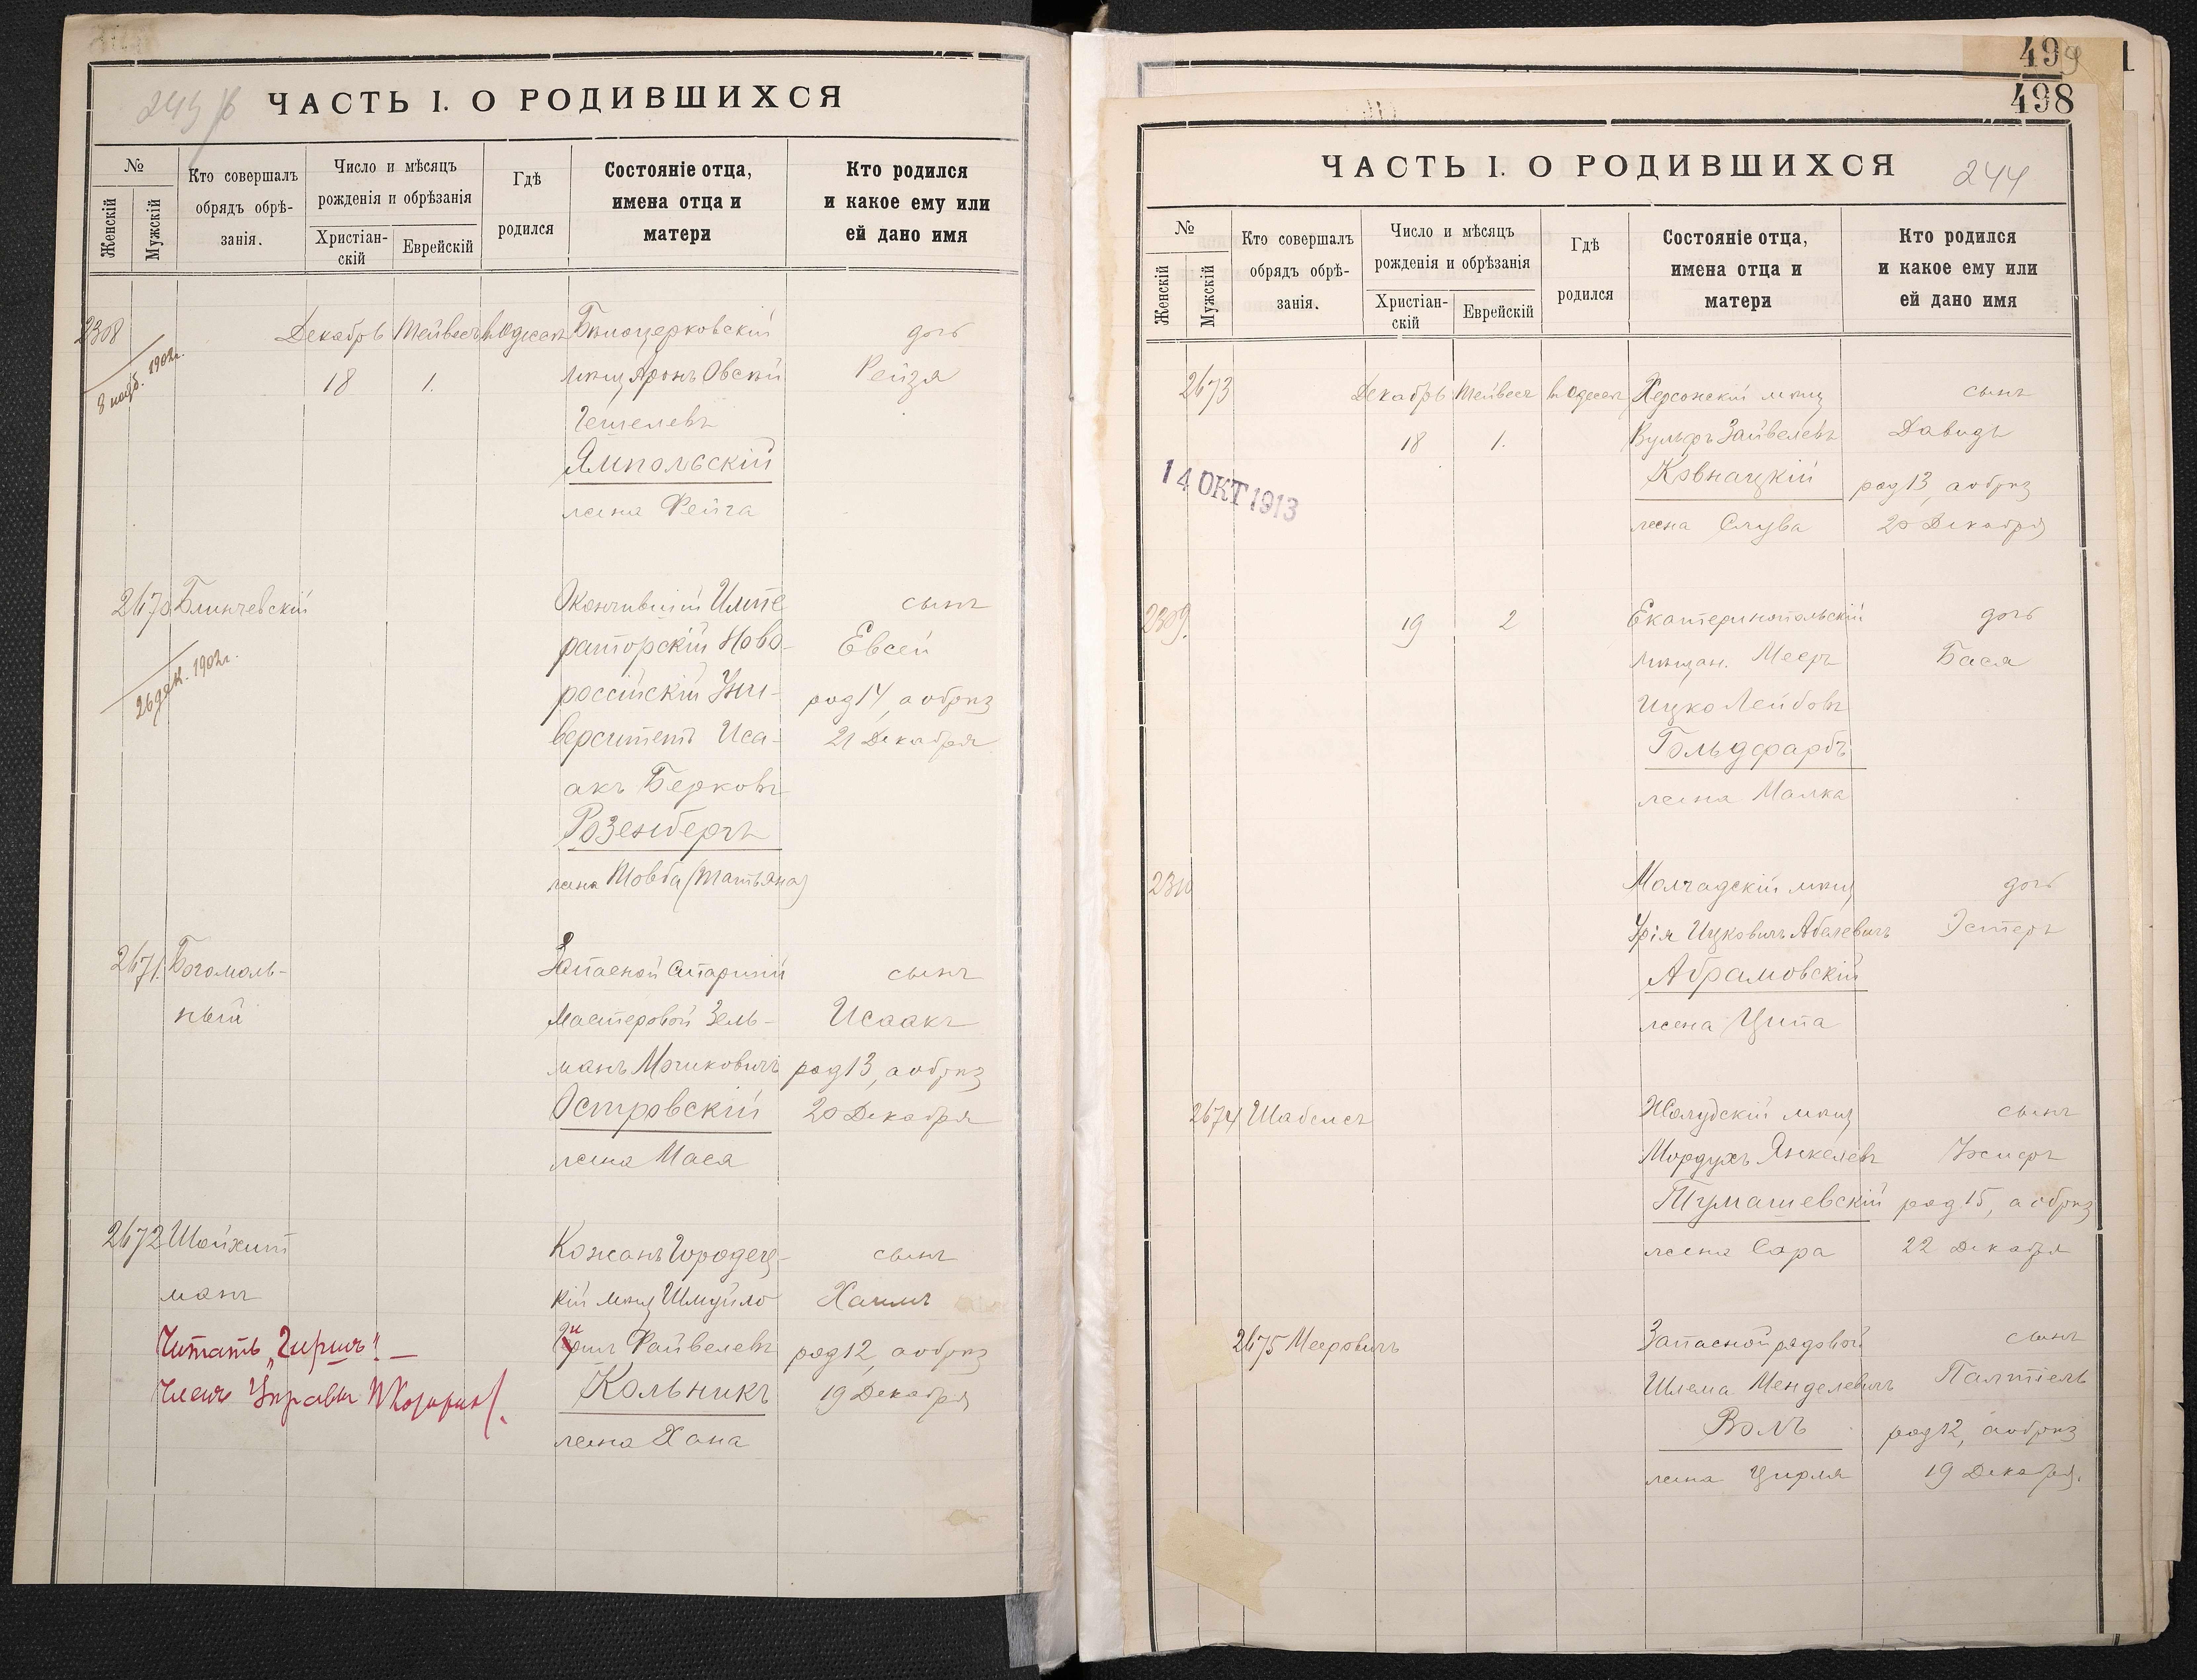 ЧАСТЬ I. О РОДИВШИХСЯ
№
Женскій
Мужскій
Кто совершалъ
обрядъ обрѣ-
занія.
Число и мѣсяцъ
рожденія и обрѣзанія
Христіан-
скій
Еврейскій
Гдѣ
родился
Состояніе отца,
имена отца и
матери
Кто родился
и какое ему или
ей дано имя
2308
8 нояб. 1902г.
Декабрь
18
Тейвесъ
1.
въ Одессѣ
Бѣлоцерковскій
мѣщ Аронъ Овсѣй
Гешелевъ
Ямпольскій
жена Фейга
дочь
Рейзя
2670
26 дек. 1902г.
Блинчевскій
Окончившій Импе
раторскій Ново-
россійскій Уни-
верситетъ Иса-
акъ Берковъ
Розенбергъ
жена Товба (Татьяна)
сынъ
Евсей
род 14, а обрѣз
21 Декабря
2671.
Богомоль-
ный
Запасной Старшій
Мастеровой Зель-
манъ
Островскій
жена Мася
сынъ
Исаакъ
род 13, а обрѣз
20 Декабря
2672
Шойхит
манъ
Кожанъ Городец-
кій мѣщ Шмуйло
Файвелевъ
Кольникъ
жена Хана
сынъ
Хаимъ
род 12, а обрѣз
19 Декабря
Читать „Гиршъ". —
Членъ Управы
499
498
ЧАСТЬ I. О РОДИВШИХСЯ
244
№
Женскій
Мужскій
Кто совершалъ
обрядъ обрѣ-
занія.
Число и мѣсяцъ
рожденія и обрѣзанія
Христіан-
скій
Еврейскій
Гдѣ
родился
Состояніе отца,
имена отца и
матери
Кто родился
и какое ему или
ей дано имя
2673
14 ОКТ 1913
Декабрь
18
Тейвесъ
1.
въ Одессѣ
Херсонскій мѣщ
Вульфъ Зайвелевъ
Ковнацкій
жена Слува
сынъ
Давидъ
род 13, а обрѣз
20 Декабря
2309.
19
2
Екатеринопольскій
мѣщан. Мееръ
Ицко Лейбовъ
Гольдфарбъ
жена Малка
дочь
Бася
2310
Молчадскій мѣщ
Урія Ицковичъ Абелевичъ
Абрамовскій
жена Ципа
дочь
Эстеръ
2674
Шабсисъ
Жолудскій мѣщ
Мордухъ Янкелевъ
Тумашевскій
жена Сара
сынъ
род 15, а обрѣз
22 Декабря
2675
Мееровичъ
Запасной рядовой
Шлема Менделевичъ
Волъ
жена Цирля
сынъ
Палтіель
род 12, а обрѣз
19 Декабря.